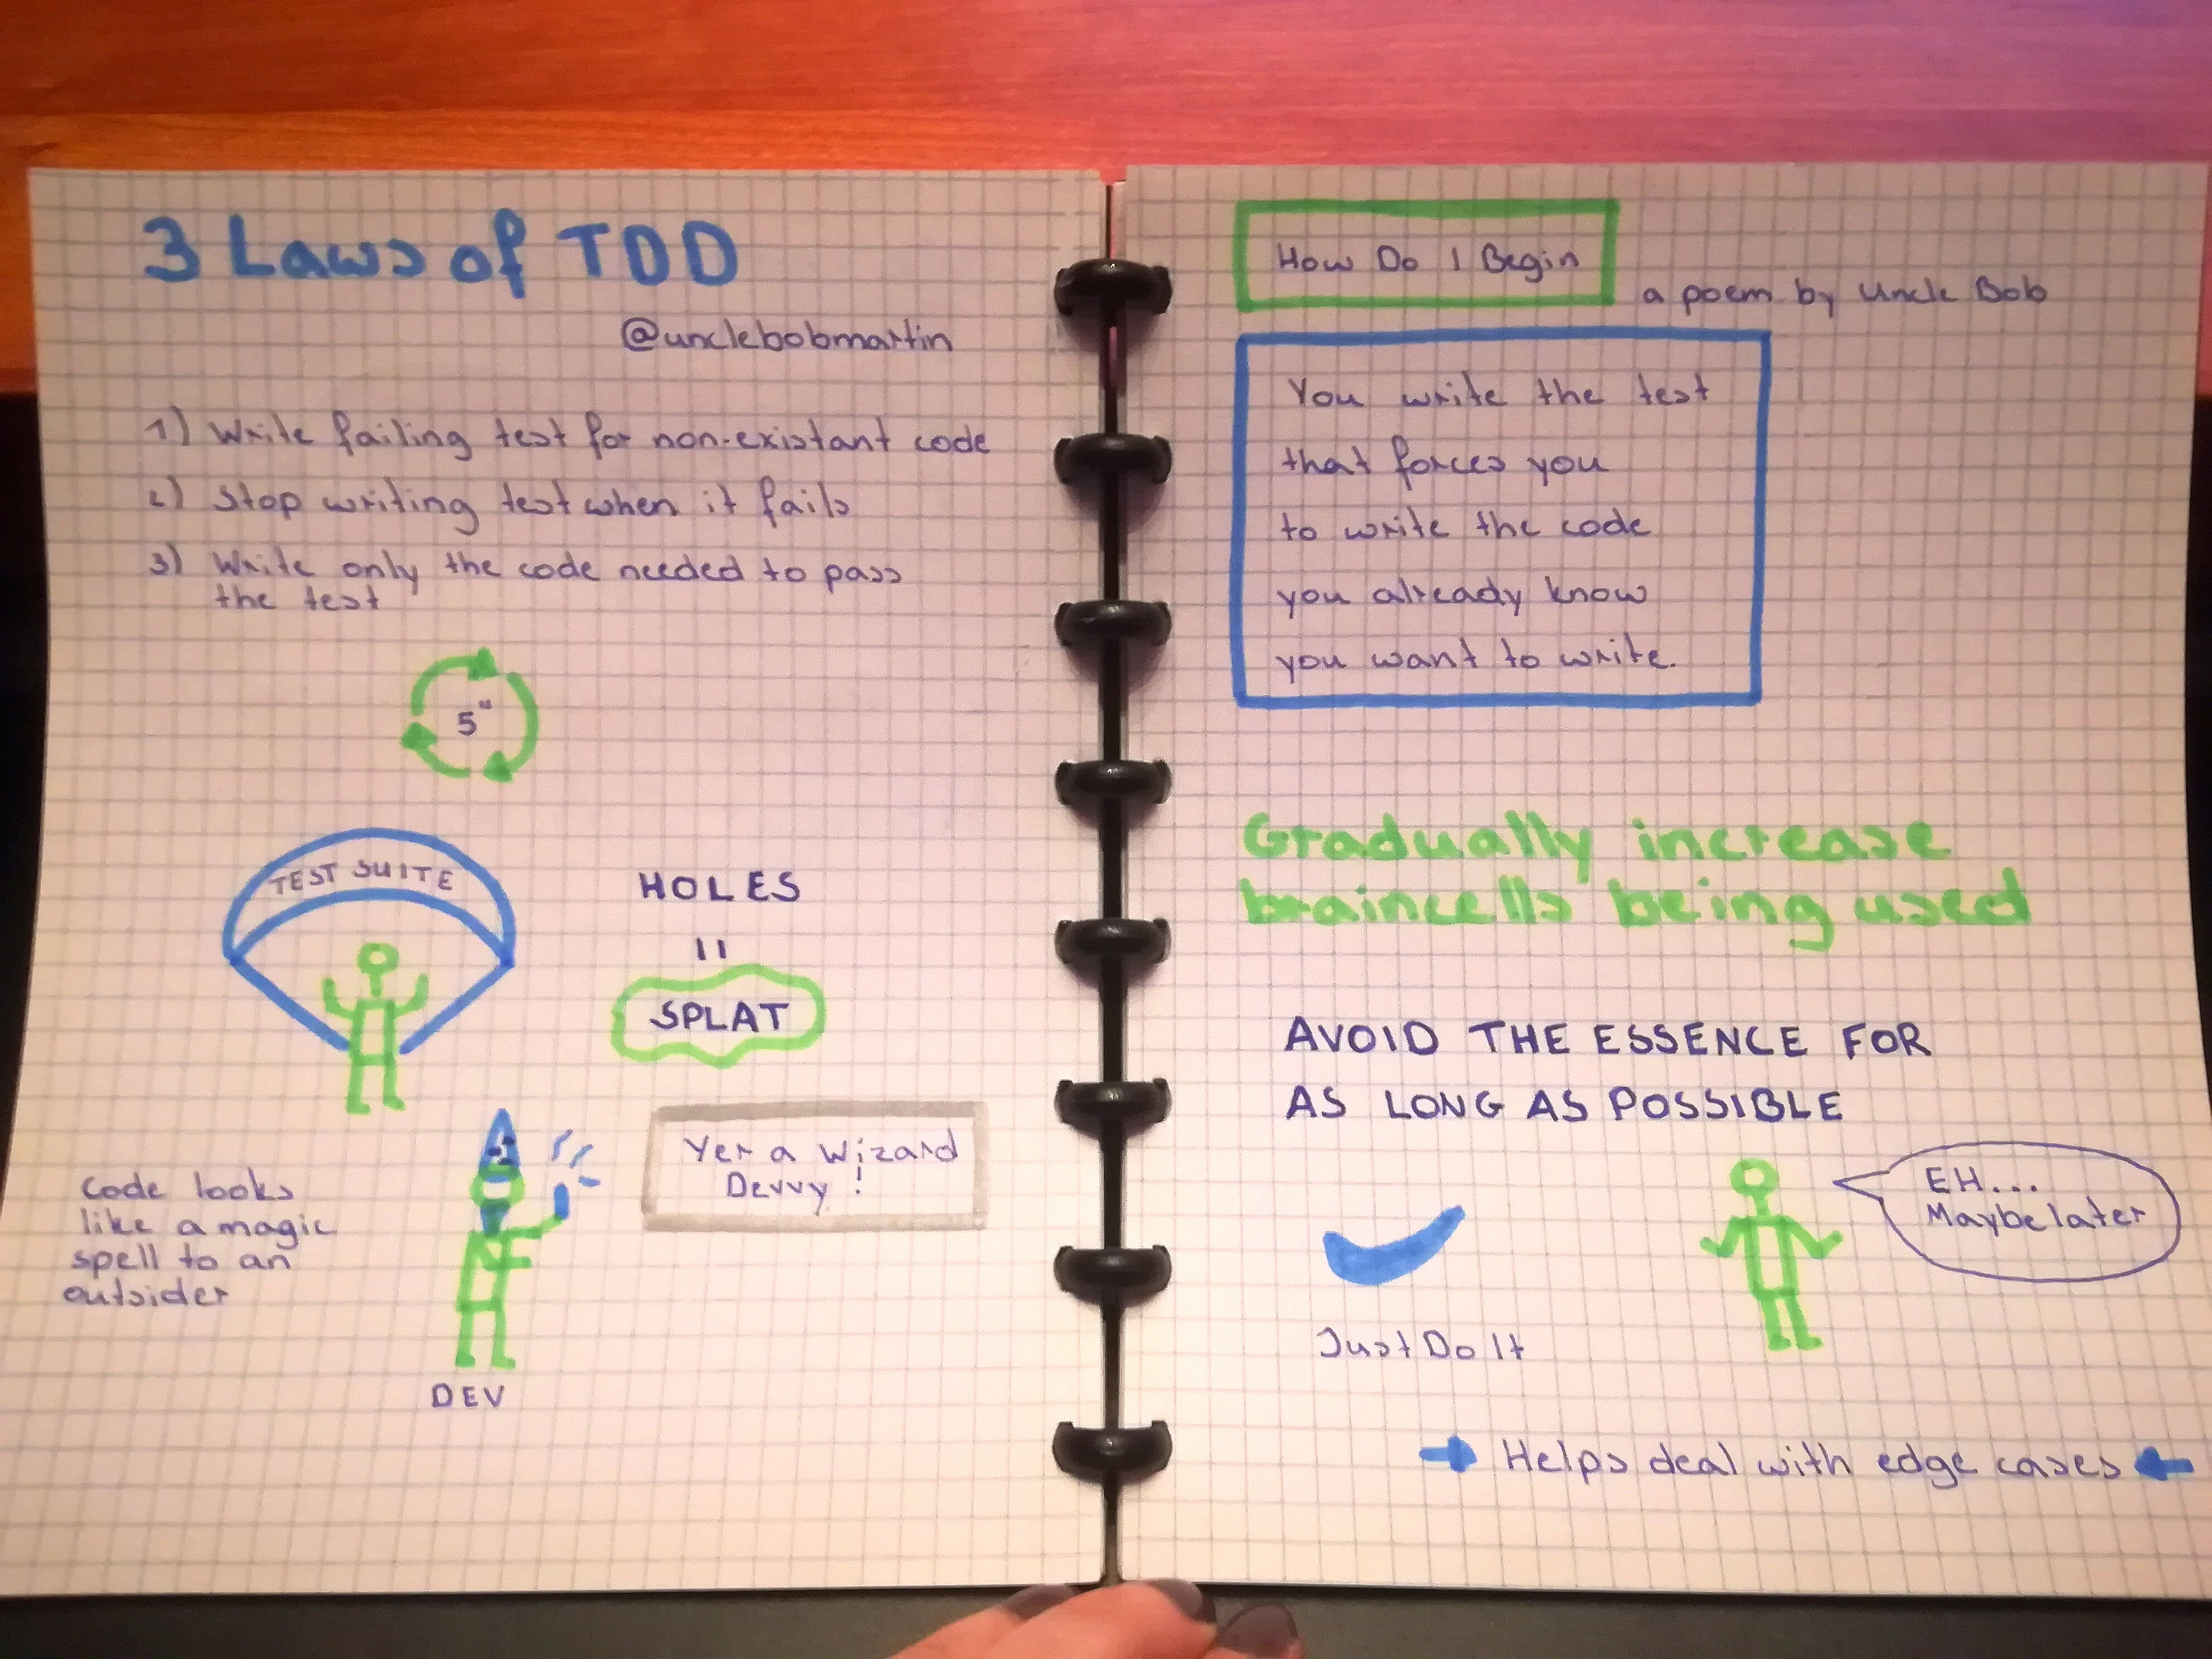 3 Laws of TDD
@unclebobmartin
1) Write failing test for non-existant code
2) Stop writing test when it fails
3) Write only the code needed to pass
the test
5"
TEST SUITE
HOLES
=
SPLAT
Code looks
like a magic
spell to an
outsider
DEV
Yer a Wizard
Devvy!
How Do I Begin
a poem by Uncle Bob
You write the test
that forces you
to write the code
you already know
you want to write.
Gradually increase
braincells being used
AVOID THE ESSENCE FOR
AS LONG AS POSSIBLE
Just Do It
EH...
Maybe later
Helps deal with edge cases